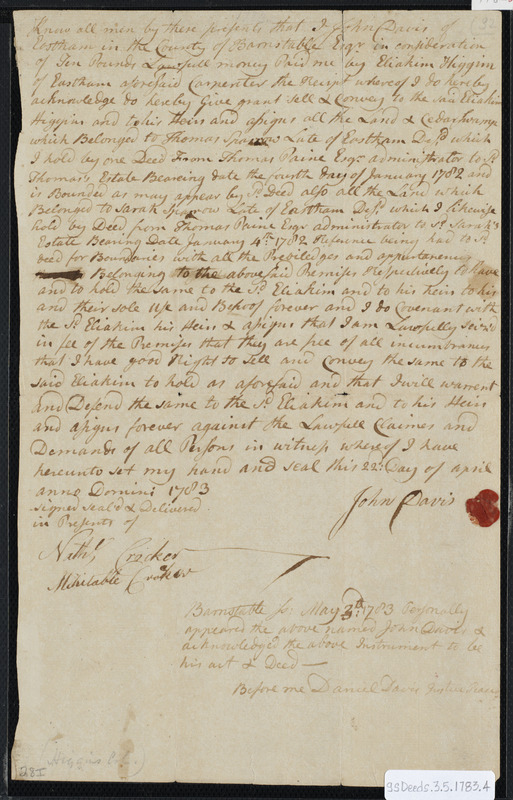 Know all men by these presents that I John Davis of
Eastham in the County of Barnstable Esqr in consideration
of Ten Pounds Lawfull money Paid me by Eliakim Higgins
of Eastham aforesaid Carpenter the Receipt whereof I do hereby
acknowledge do hereby Give grant Sell & Convey to the said Eliakim
Higgins and to his Heirs and assigns all the Land & Cedarswamp
which Belonged to Thomas Sparrow Late of Eastham Desd which
I hold by one Deed From Thomas Paine Esqr administrator to sd
Thomas's Estate Beareing date the fourth day of January 1782 and
is Bounded as may appear by sd Deed also all the Land which
Belonged to Sarah Sparrow Late of Eastham Desd which I likewise
hold by Deed from Thomas Paine Esqr administrator to sd Sarah's
Estate Bearing Date January 4th 1782 Reference being had to sd
deed for Boundaries with all the Previledges and appurtenances
Belonging to the abovesaid Premises Respectively to have
and to hold the same to the sd Eliakim and to his heirs to his
and their sole use and Behoof forever and I do Covenant with
the sd Eliakim his Heirs & assigns that I am Lawfully Seiz'd
in fee of the Premises that they are free of all incumbrances
that I have good Right to Sell and Convey the same to the
said Eliakim to hold as aforesaid and that I will warrent
and Defend the same to the sd Eliakim and to his Heirs
and assigns forever against the Lawfull Claimes and
Demands of all Persons in witness whereof I have
hereunto set my hand and seal this 22d Day of april
anno Domini 1783
signed seal'd & Delivered
in Presents of
John Davis
Nathl, Crocker
Mehitable Crocker
Barnstable ss; May 3th: 1783 Personally
appeared the above named John Davis &
acknowledged the above Instrument to be
his act & Deed —
Before me Daniel Davis Justice Peace
(Higgins
28I
gsDeeds.3.5.1783.4